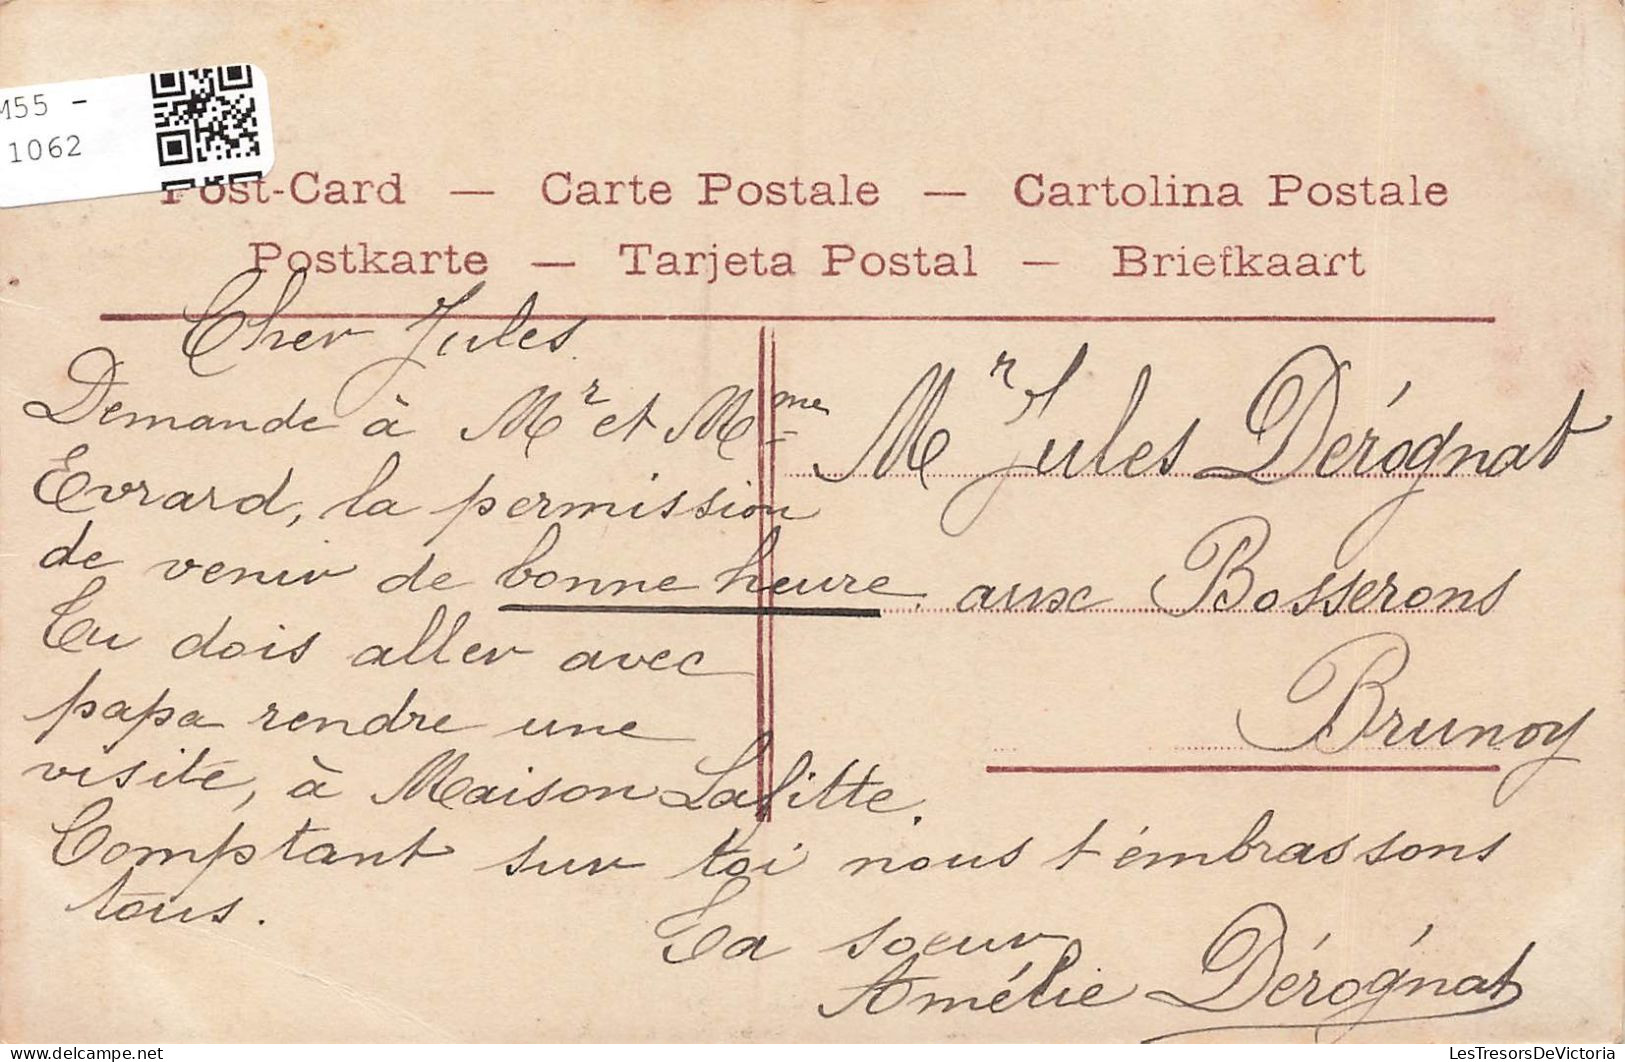 M55 -
1062
Post-Card — Carte Postale — Cartolina Postale
Postkarte — Tarjeta Postal — Briefkaart
Cher Jules.
Demande à Mr et Mme
Evrard, la permission
de venir de bonne heure.
Tu dois aller avec
papa rendre une
visite, à Maison Lafitte.
Comptant sur toi nous t'embrassons
tous.
Ta soeur
Amélie Dérognat
Mr Jules Dérognat
aux Bosserons
Brunoy
LesTresorsDeVictoria